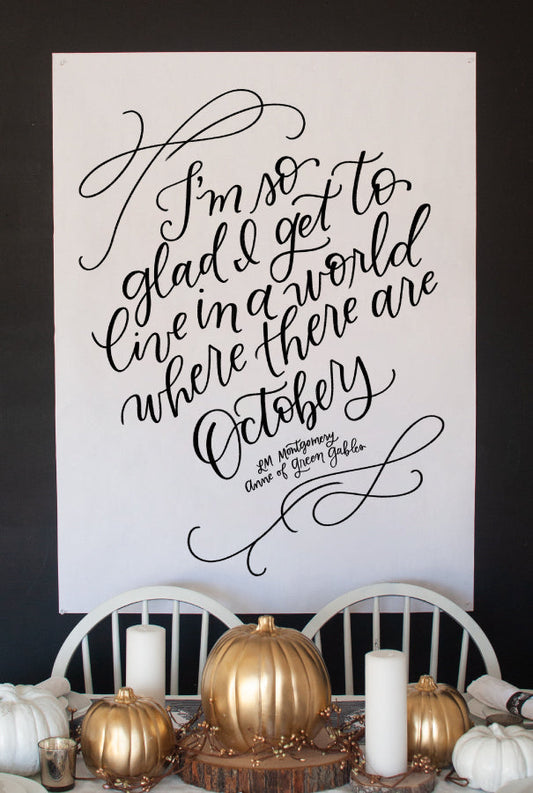 I'm so
glad I get to
live in a world
where there are
Octobers
LM Montgomery
Anne of Green Gables